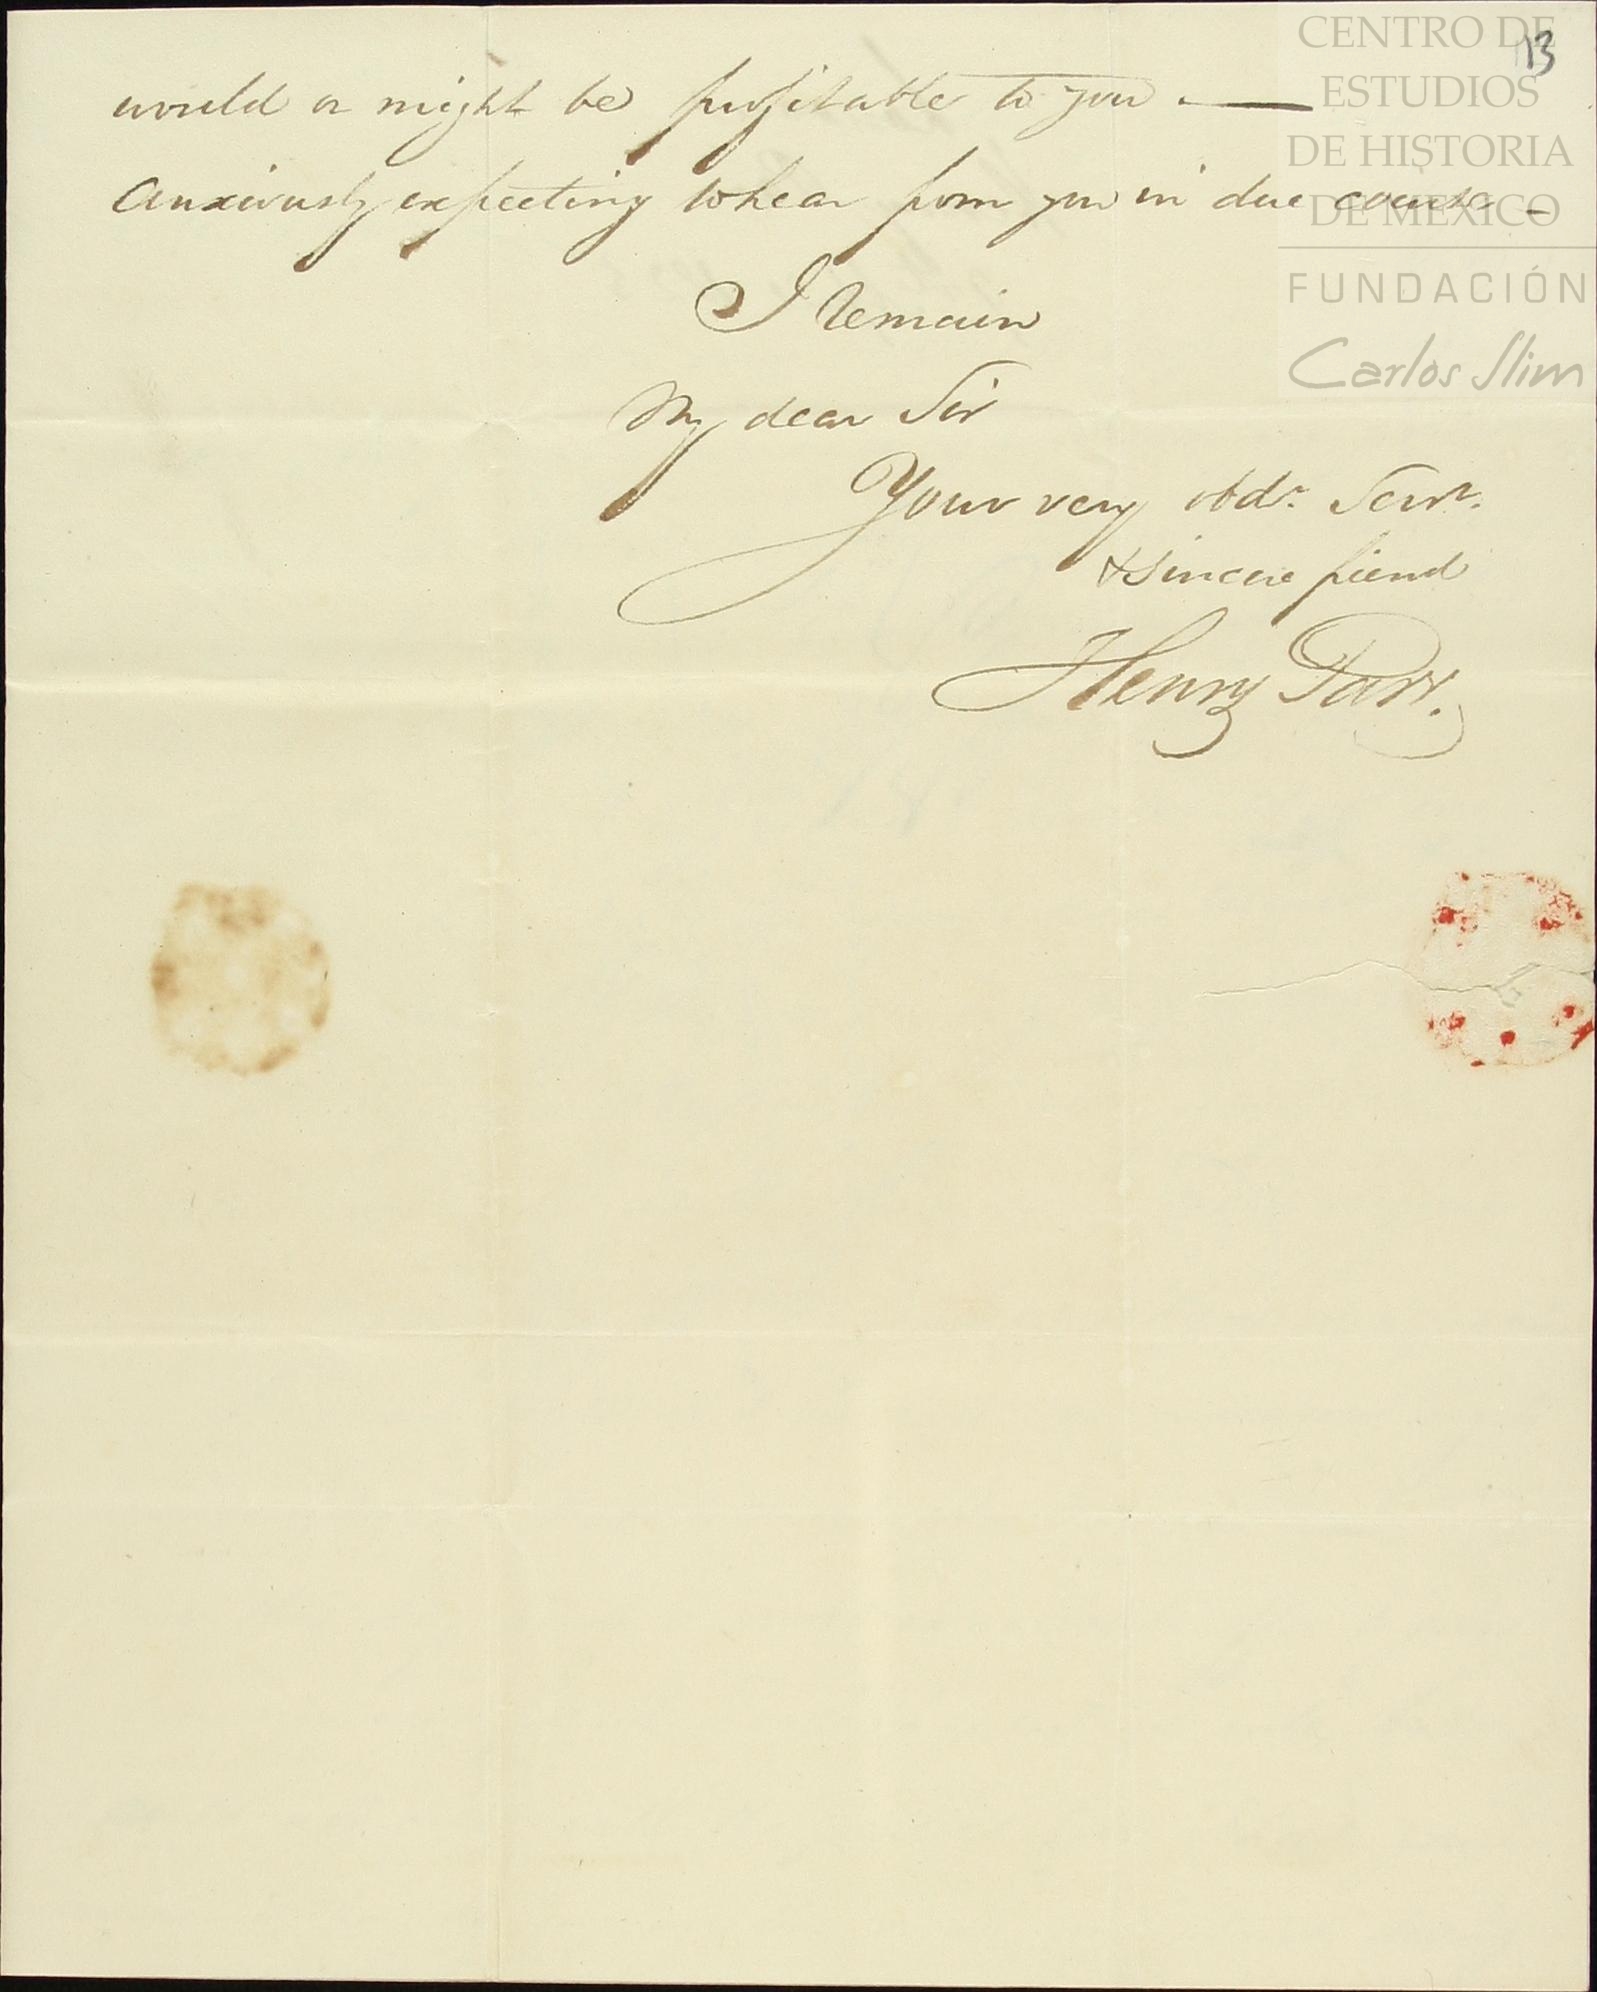 13
would or might be profitable to you. —
Anxiously expecting to hear from you in due course —
I remain
My dear Sir
Your very obdt. Servt.
& sincere friend
Henry Parr.
CENTRO DE
ESTUDIOS
DE HISTORIA
DE MEXICO
FUNDACIÓN
Carlos Slim